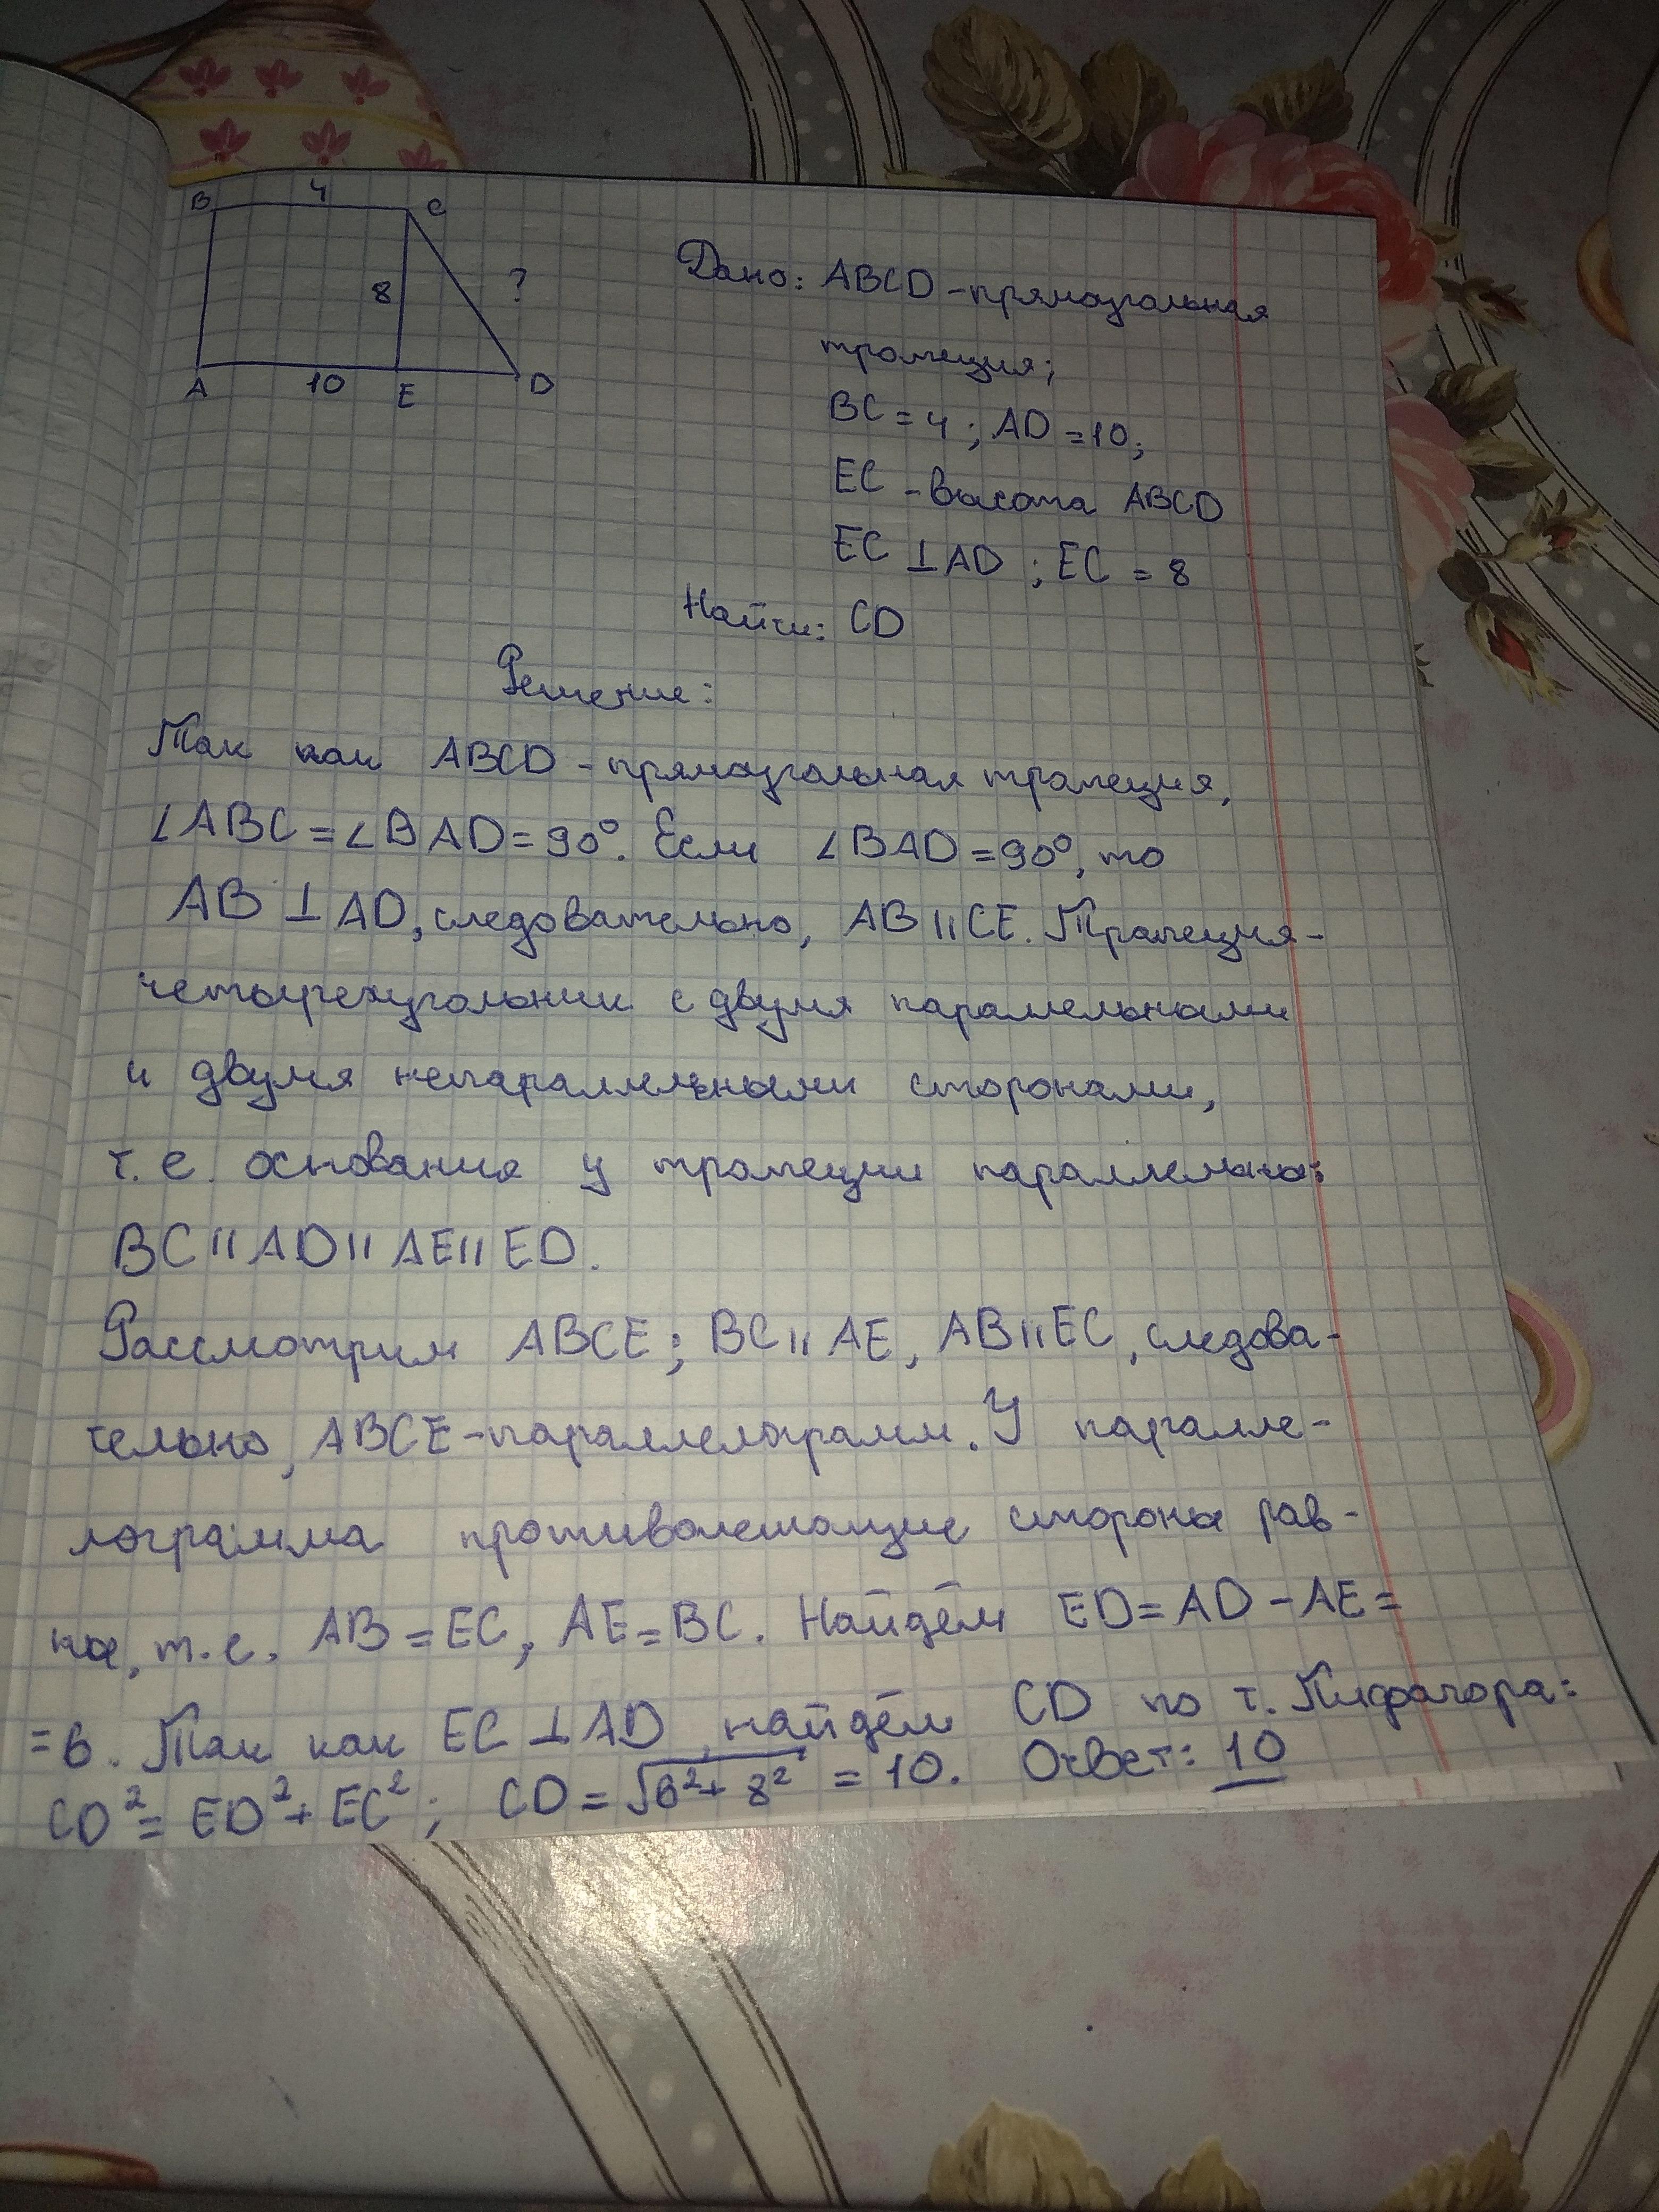 B 4 C
8 ?
A 10 E D
Дано: ABCD - прямоугольная
трапеция;
BC = 4 ; AD = 10;
EC - высота ABCD
EC ⊥ AD ; EC = 8
Найти: CD
Решение:
Так как ABCD - прямоугольная трапеция,
∠ABC = ∠BAD = 90°. Если ∠BAD = 90°, то
AB ⊥ AD, следовательно, AB || CE. Трапеция -
четырехугольник с двумя параллельными
и двумя непараллельными сторонами,
т.е. основания у трапеции параллельны:
BC || AD || AE || ED.
Рассмотрим ABCE; BC || AE, AB || EC, следова-
тельно, ABCE - параллелограмм. У паралле-
лограмма противолежащие стороны рав-
ны, т.е. AB = EC, AE = BC. Найдём ED = AD - AE =
= 6. Так как EC ⊥ AD, найдём CD по т. Пифагора:
CD² = ED² + EC² ; CD = √6² + 8² = 10. Ответ: 10